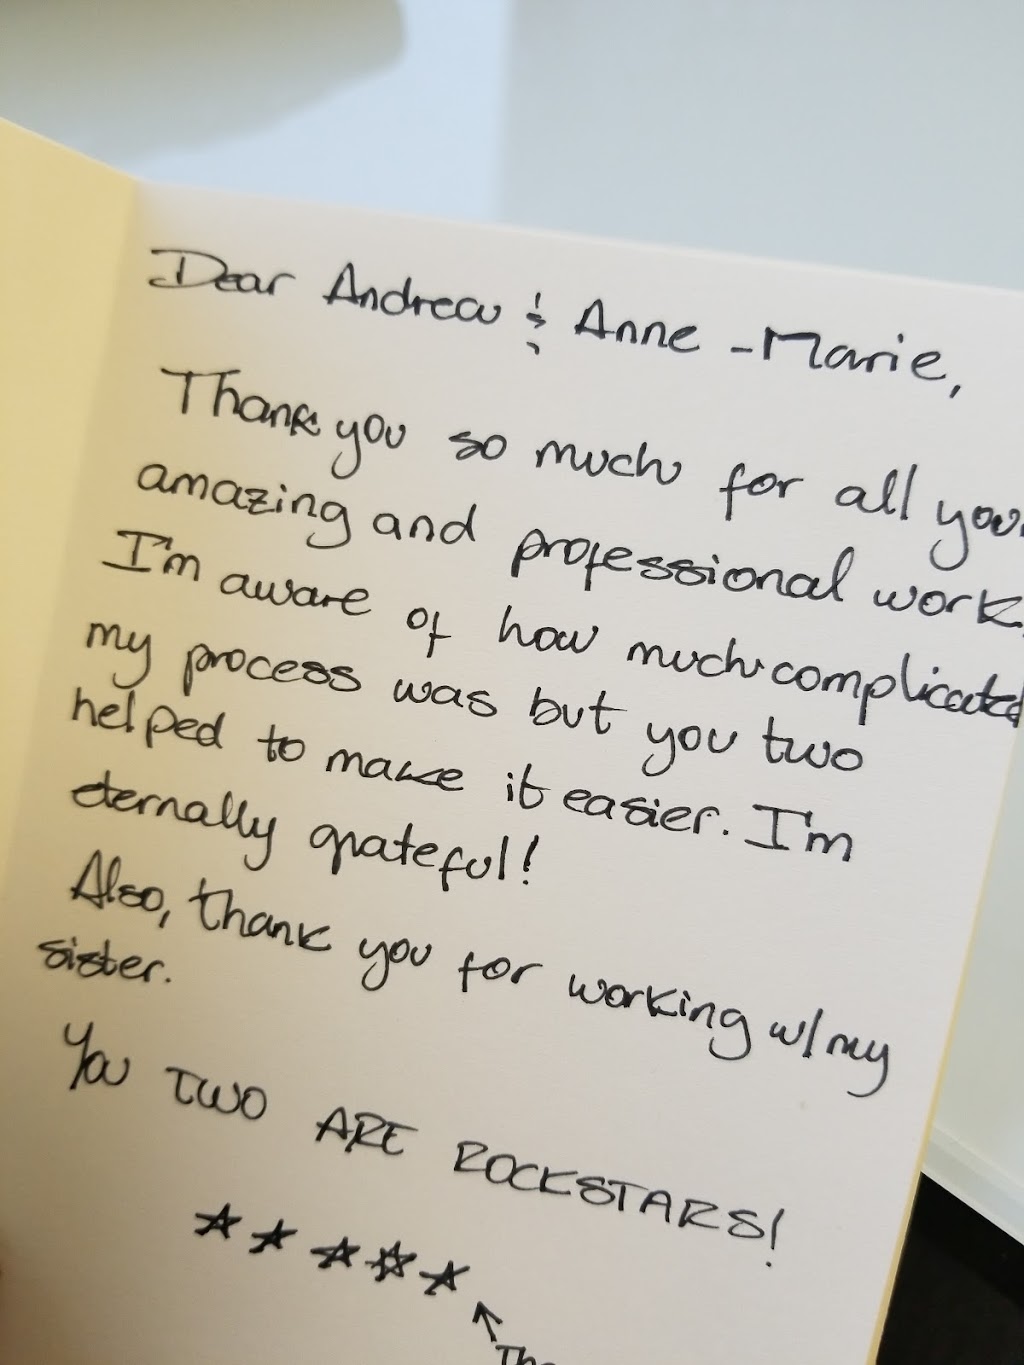 Dear Andrew & Anne-Marie,
Thank you so much for all your
amazing and professional work.
I'm aware of how much complicated
my process was but you two
helped to make it easier. I'm
eternally grateful!
Also, thank you for working w/ my
sister.
You TWO ARE ROCKSTARS!
★★★★★